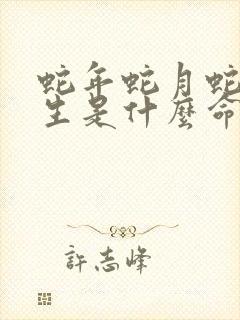 蛇年蛇月蛇
生是什麼命
許志峰